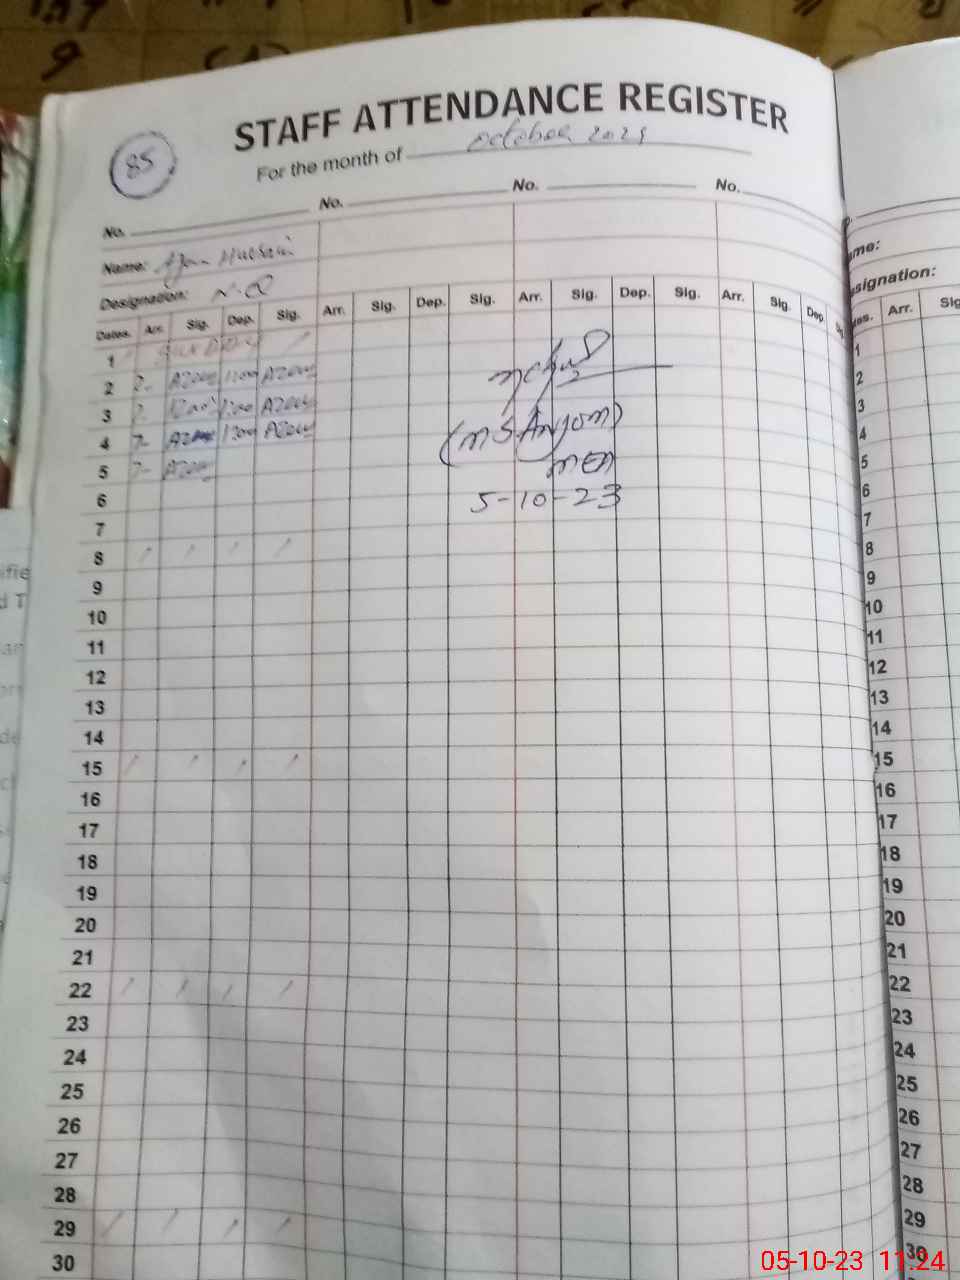 STAFF ATTENDANCE REGISTER
85
For the month of October 202
No. No. No. No.
Name: Hussain
Designation: N.Q
Dates. Arr. Sig. Dep. Sig. Arr. Sig. Dep. Sig. Arr. Sig. Dep. Sig. Arr. Sig. Dep. Sig.
1 SUNDAY
2 7-
3 7- 1:00
4 7- 1:00
5 7-
(M S Anjom)
MEA
5-10-23
6
7
8
9
10
11
12
13
14
15
16
17
18
19
20
21
22
23
24
25
26
27
28
29
30
ame:
signation:
es. Arr. Sig
1
2
3
4
5
6
7
8
9
10
11
12
13
14
15
16
17
18
19
20
21
22
23
24
25
26
27
28
29
30
05-10-23 11:24